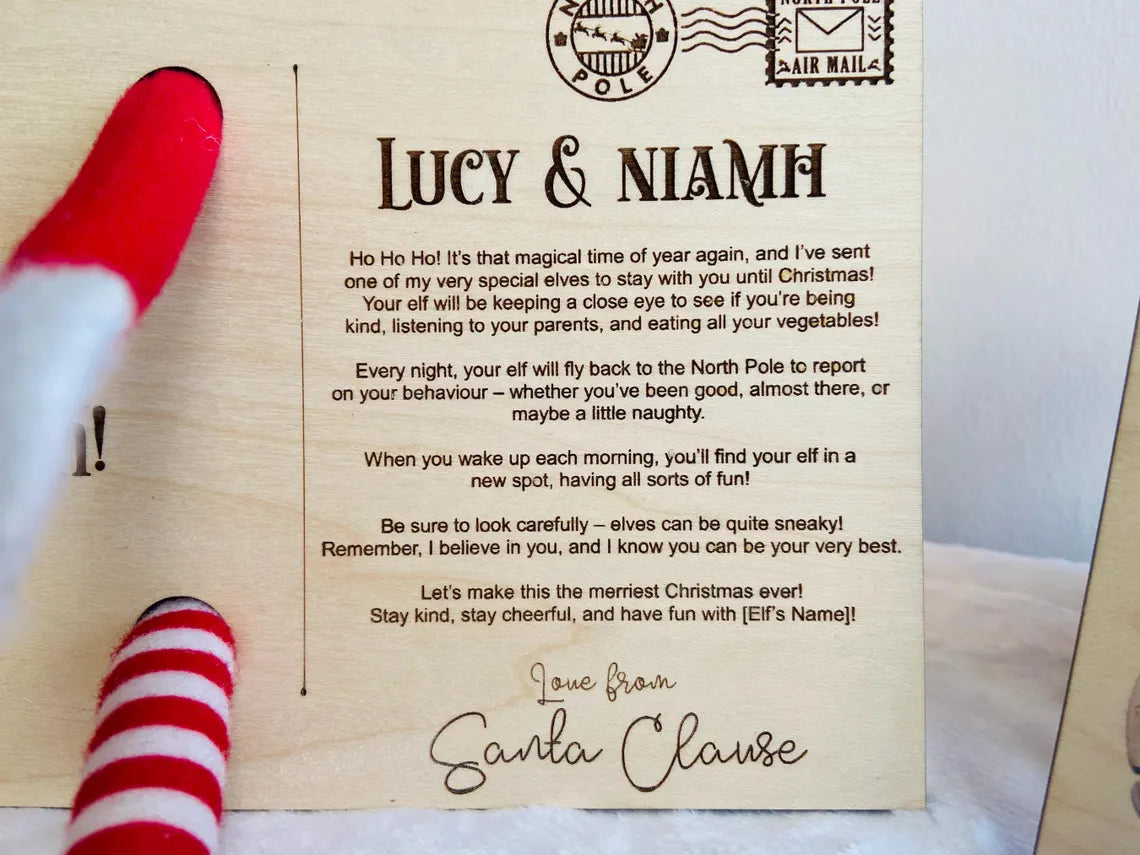 NORTH POLE
AIR MAIL
POLE
LUCY & NIAMH
Ho Ho Ho! It's that magical time of year again, and I've sent
one of my very special elves to stay with you until Christmas!
Your elf will be keeping a close eye to see if you're being
kind, listening to your parents, and eating all your vegetables!
Every night, your elf will fly back to the North Pole to report
on your behaviour – whether you've been good, almost there, or
maybe a little naughty.
When you wake up each morning, you'll find your elf in a
new spot, having all sorts of fun!
Be sure to look carefully – elves can be quite sneaky!
Remember, I believe in you, and I know you can be your very best.
Let's make this the merriest Christmas ever!
Stay kind, stay cheerful, and have fun with [Elf's Name]!
Love from
Santa Clause